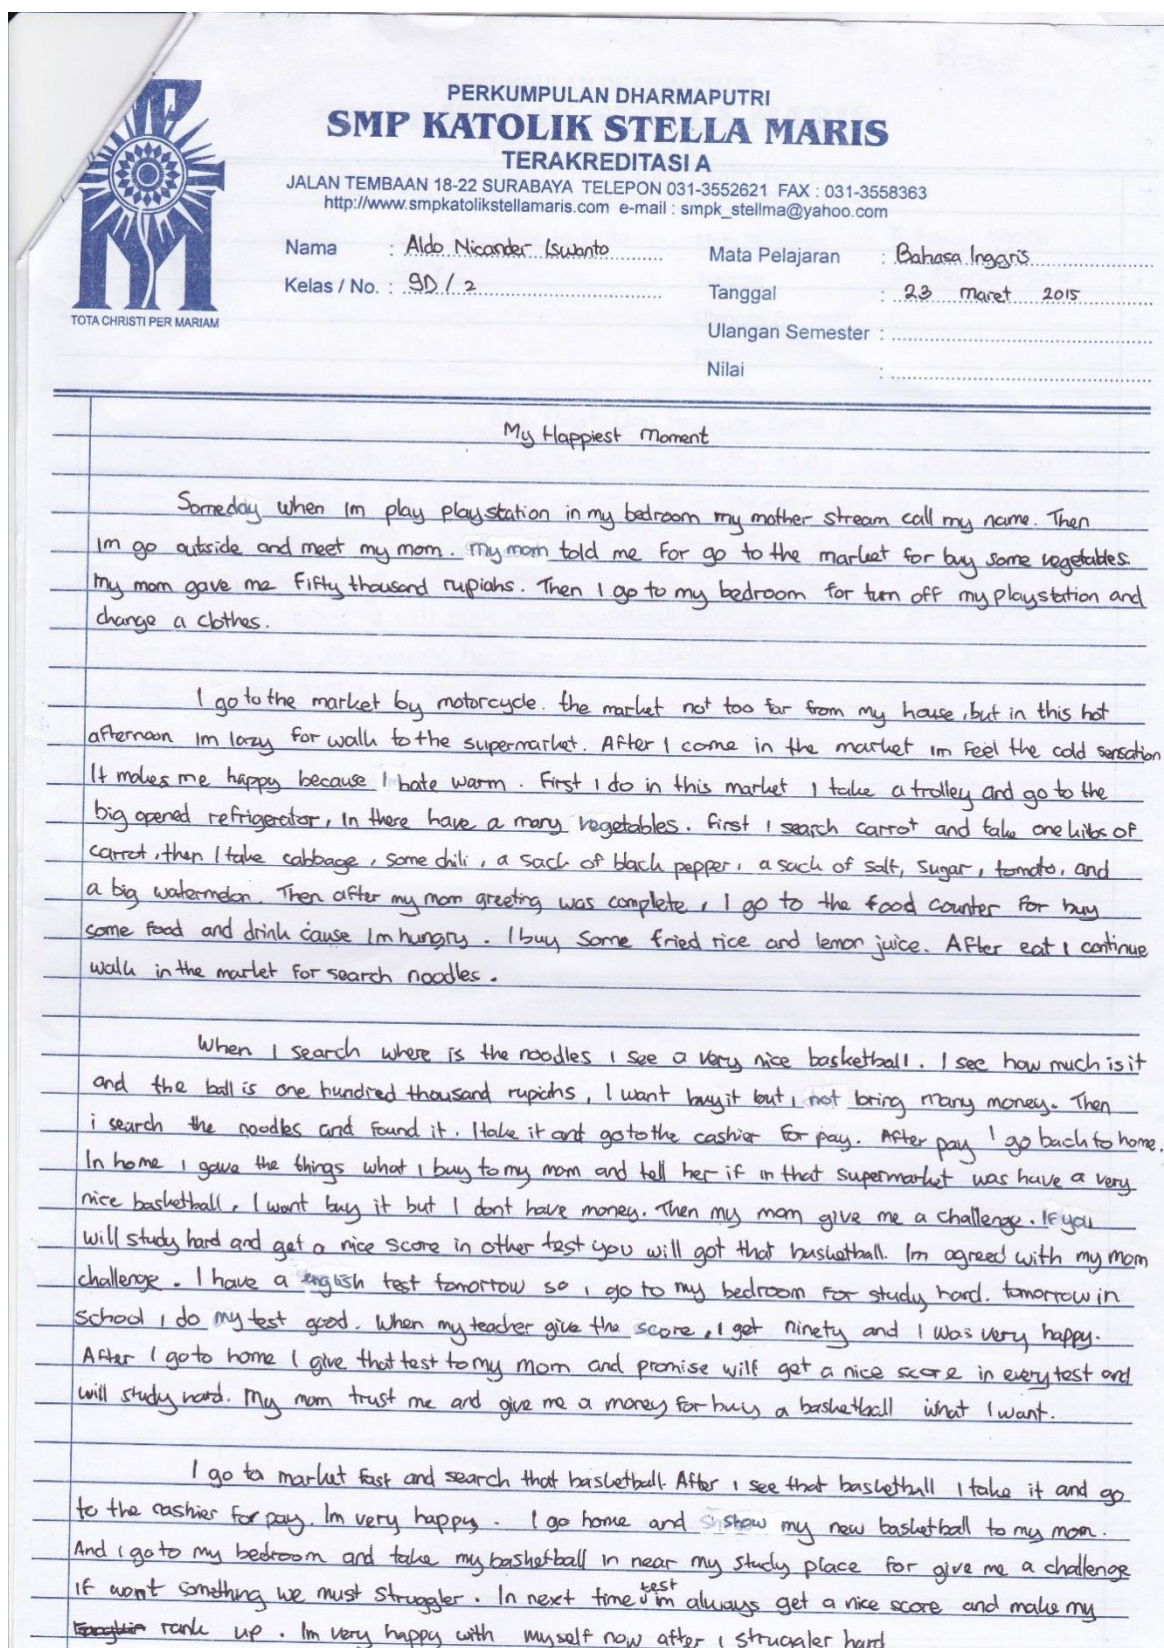 PERKUMPULAN DHARMAPUTRI
SMP KATOLIK STELLA MARIS
TERAKREDITASI A
JALAN TEMBAAN 18-22 SURABAYA TELEPON 031-3552621 FAX : 031-3558363
http://www.smpkatolikstellamaris.com e-mail : smpk_stellma@yahoo.com
TOTA CHRISTI PER MARIAM
Nama : Aldo Nicander Iswanto
Kelas / No. : 9D / 2
Mata Pelajaran : Bahasa Inggris
Tanggal : 23 Maret 2015
Ulangan Semester :
Nilai :
My Happiest Moment
Someday when Im play playstation in my bedroom my mother stream call my name. Then
Im go outside and meet my mom. My mom told me for go to the market for buy some vegetables.
My mom gave me fifty thousand rupiahs. Then I go to my bedroom for turn off my playstation and
change a clothes.
I go to the market by motorcycle. the market not too far from my house, but in this hot
afternoon Im lazy for walk to the supermarket. After I come in the market Im feel the cold sensation
It makes me happy because I hate warm. First I do in this market I take a trolley and go to the
big opened refrigerator, In there have a many vegetables. First I search carrot and take one kilos of
carrot, then I take cabbage, some chili, a sack of black pepper, a sack of salt, sugar, tomato, and
a big watermelon. Then after my mom greeting was complete, I go to the food counter for buy
some food and drink 'cause Im hungry. I buy some fried rice and lemon juice. After eat I continue
walk in the market for search noodles.
When I search where is the noodles I see a very nice basketball. I see how much is it
and the ball is one hundred thousand rupiahs, I want buy it but I not bring many money. Then
i search the noodles and found it. I take it and go to the cashier for pay. After pay I go back to home.
In home I gave the things what I buy to my mom and tell her if in that supermarket was have a very
nice basketball, I want buy it but I dont have money. Then my mom give me a challenge. If you
will study hard and get a nice score in other test you will got that basketball. Im agreed with my mom
challenge. I have a english test tomorrow so I go to my bedroom for study hard. tomorrow in
school I do my test good. When my teacher give the score, I get ninety and I was very happy.
After I go to home I give that test to my mom and promise will get a nice score in every test and
will study hard. My mom trust me and give me a money for buy a basketball what I want.
I go to market fast and search that basketball. After I see that basketball I take it and go
to the cashier for pay. Im very happy. I go home and show my new basketball to my mom.
And I go to my bedroom and take my basketball in near my study place for give me a challenge
if want something we must struggler. In next time test im always get a nice score and make my
rank up. Im very happy with myself now after I struggler hard